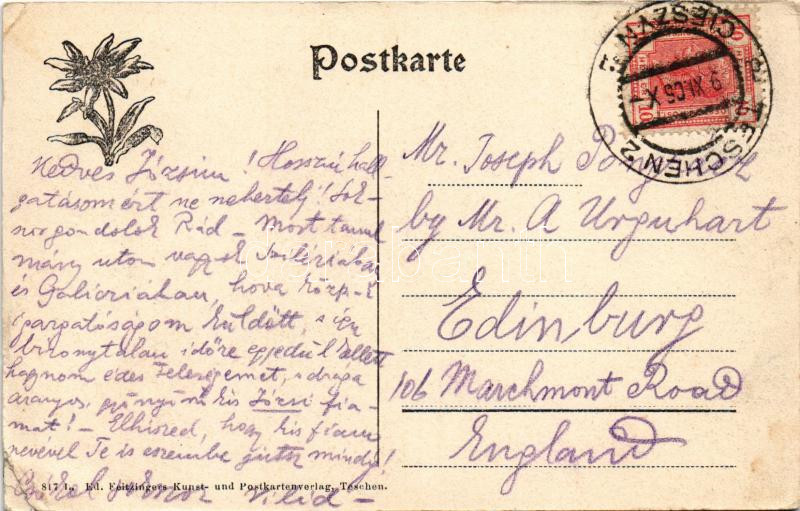 Postkarte
CIESZYN 2
TESCHEN 2
9 XI 05 X
Kedves Józsim! Hosszú hall-
gatásomért ne neheztelj! Sok-
szor gondolok Rád – Most tanul
mány uton vagyok Sziléziában
és Galicziában, hova közp.
igazgatóságom küldött, s így
bizonytalan időre egyedül kellett
hagynom édes feleségemet, s drága
aranyos, gyönyörű kis Józsi fia-
mat! – Elhiszed, hogy kis fiam
nevével Te is eszembe jutsz mindig!
ölel Vilid –
Mr. Joseph
by Mr. A Urquhart
Edinburg
106 Marchmont Road
England
817 L. Ed. Feitzingers Kunst- und Postkartenverlag, Teschen.